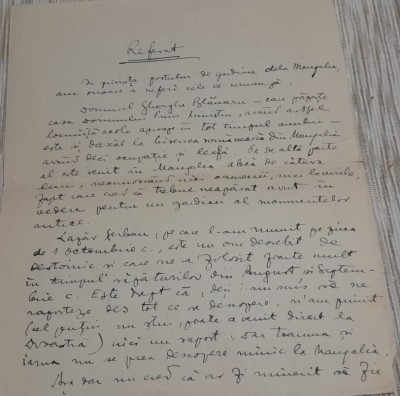 Referat
În privința postului de gardian dela Mangalia,
am onoare a referi cele ce urmează:
Domnul Gheorghe Blănaru — care păzește
casa Domnului Prim Ministru, având astfel
locuință acolo aproape în tot timpul anului —
este și dascăl la biserica românească din Mangalia
având deci ocupație și leafă. Pe de altă parte
el este venit în Mangalia abia de câteva
luni, necunoscând nici oamenii, nici locurile,
fapt care cred că trebue neapărat avut în
vedere pentru un gardian al monumentelor
antice.
Lazăr Șerban, pe care l-am numit pe ziua
de 1 Octombrie c., este un om deosebit de
destoinic și care ne-a folosit foarte mult
în timpul săpăturilor din August și Septem-
brie c. Este drept că, deși i-am spus să ne
raporteze des tot ce se descopere, n'am primit
(cel puțin nu știu, poate a venit direct la
) nici un raport: dar toamna și
iarna nu se prea descopere nimic la Mangalia.
Așa dar nu cred că ar fi nimerit să fie